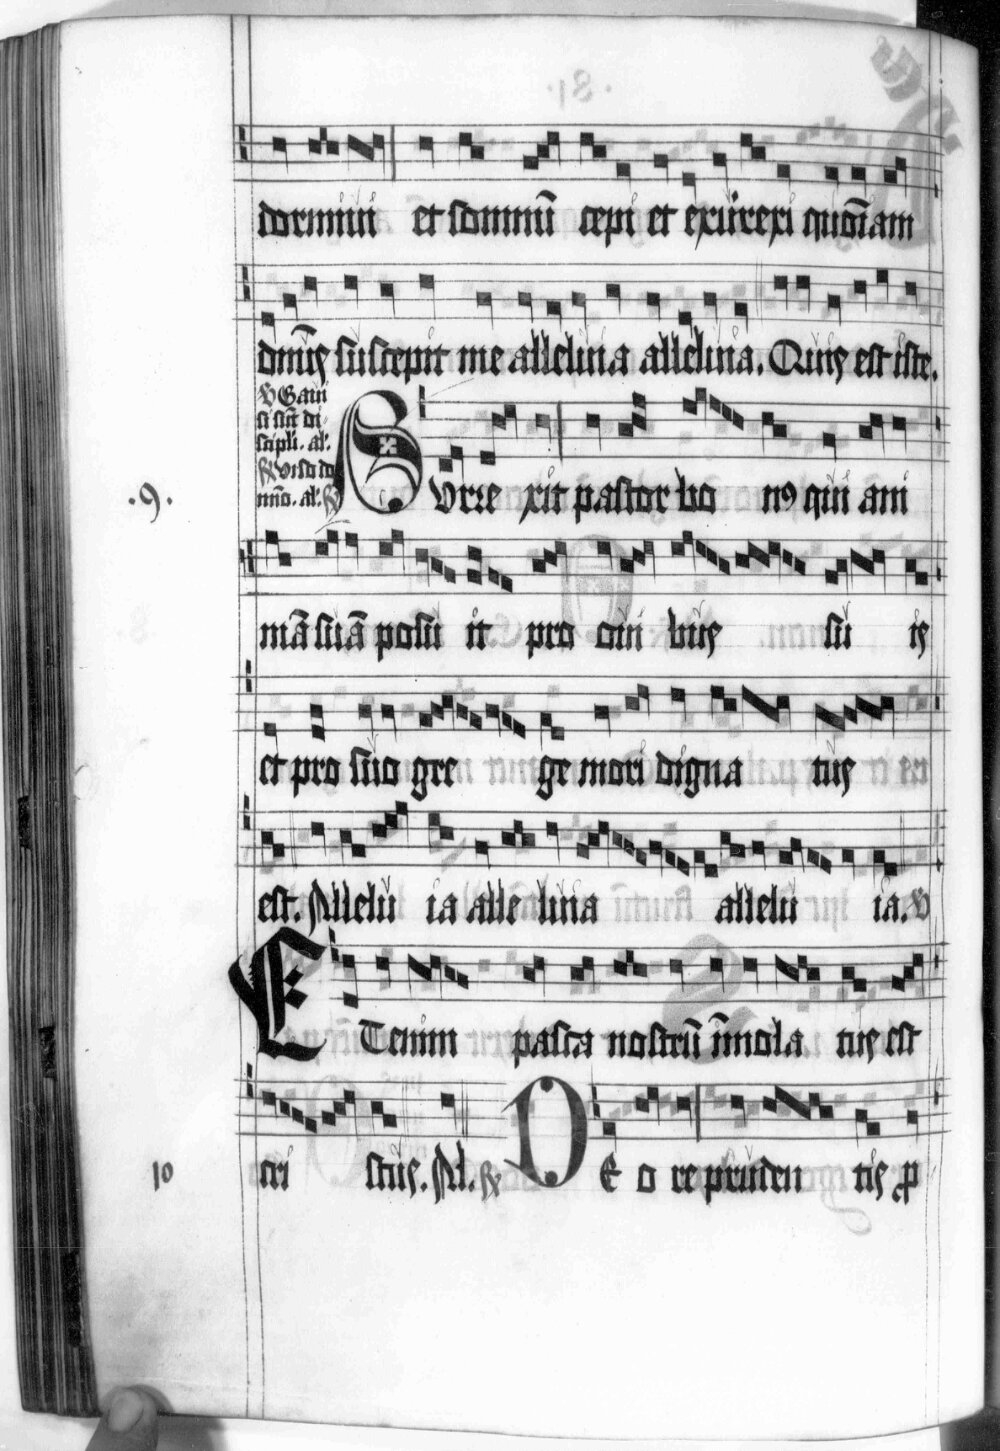 dormivi et somnū cepi et exurrexi quoniam
dmūs suscepit me alleluia alleluia. Quis est iste.
℣ Gavi
si sūt di
scipli. al'.
℟ viso do
mīo. al'. ℟
.9. SVrre xit pastor bo n9 qui ani
mā suā posu it pro oui bus su is
et pro suo gre ge mori digna tus
est. Allelu ia alle luia allelu ia. ℣
ETenim pasca nostrū īmola tus est
cri stus. Al. ℟ DE o re pruden tis ꝓ
10